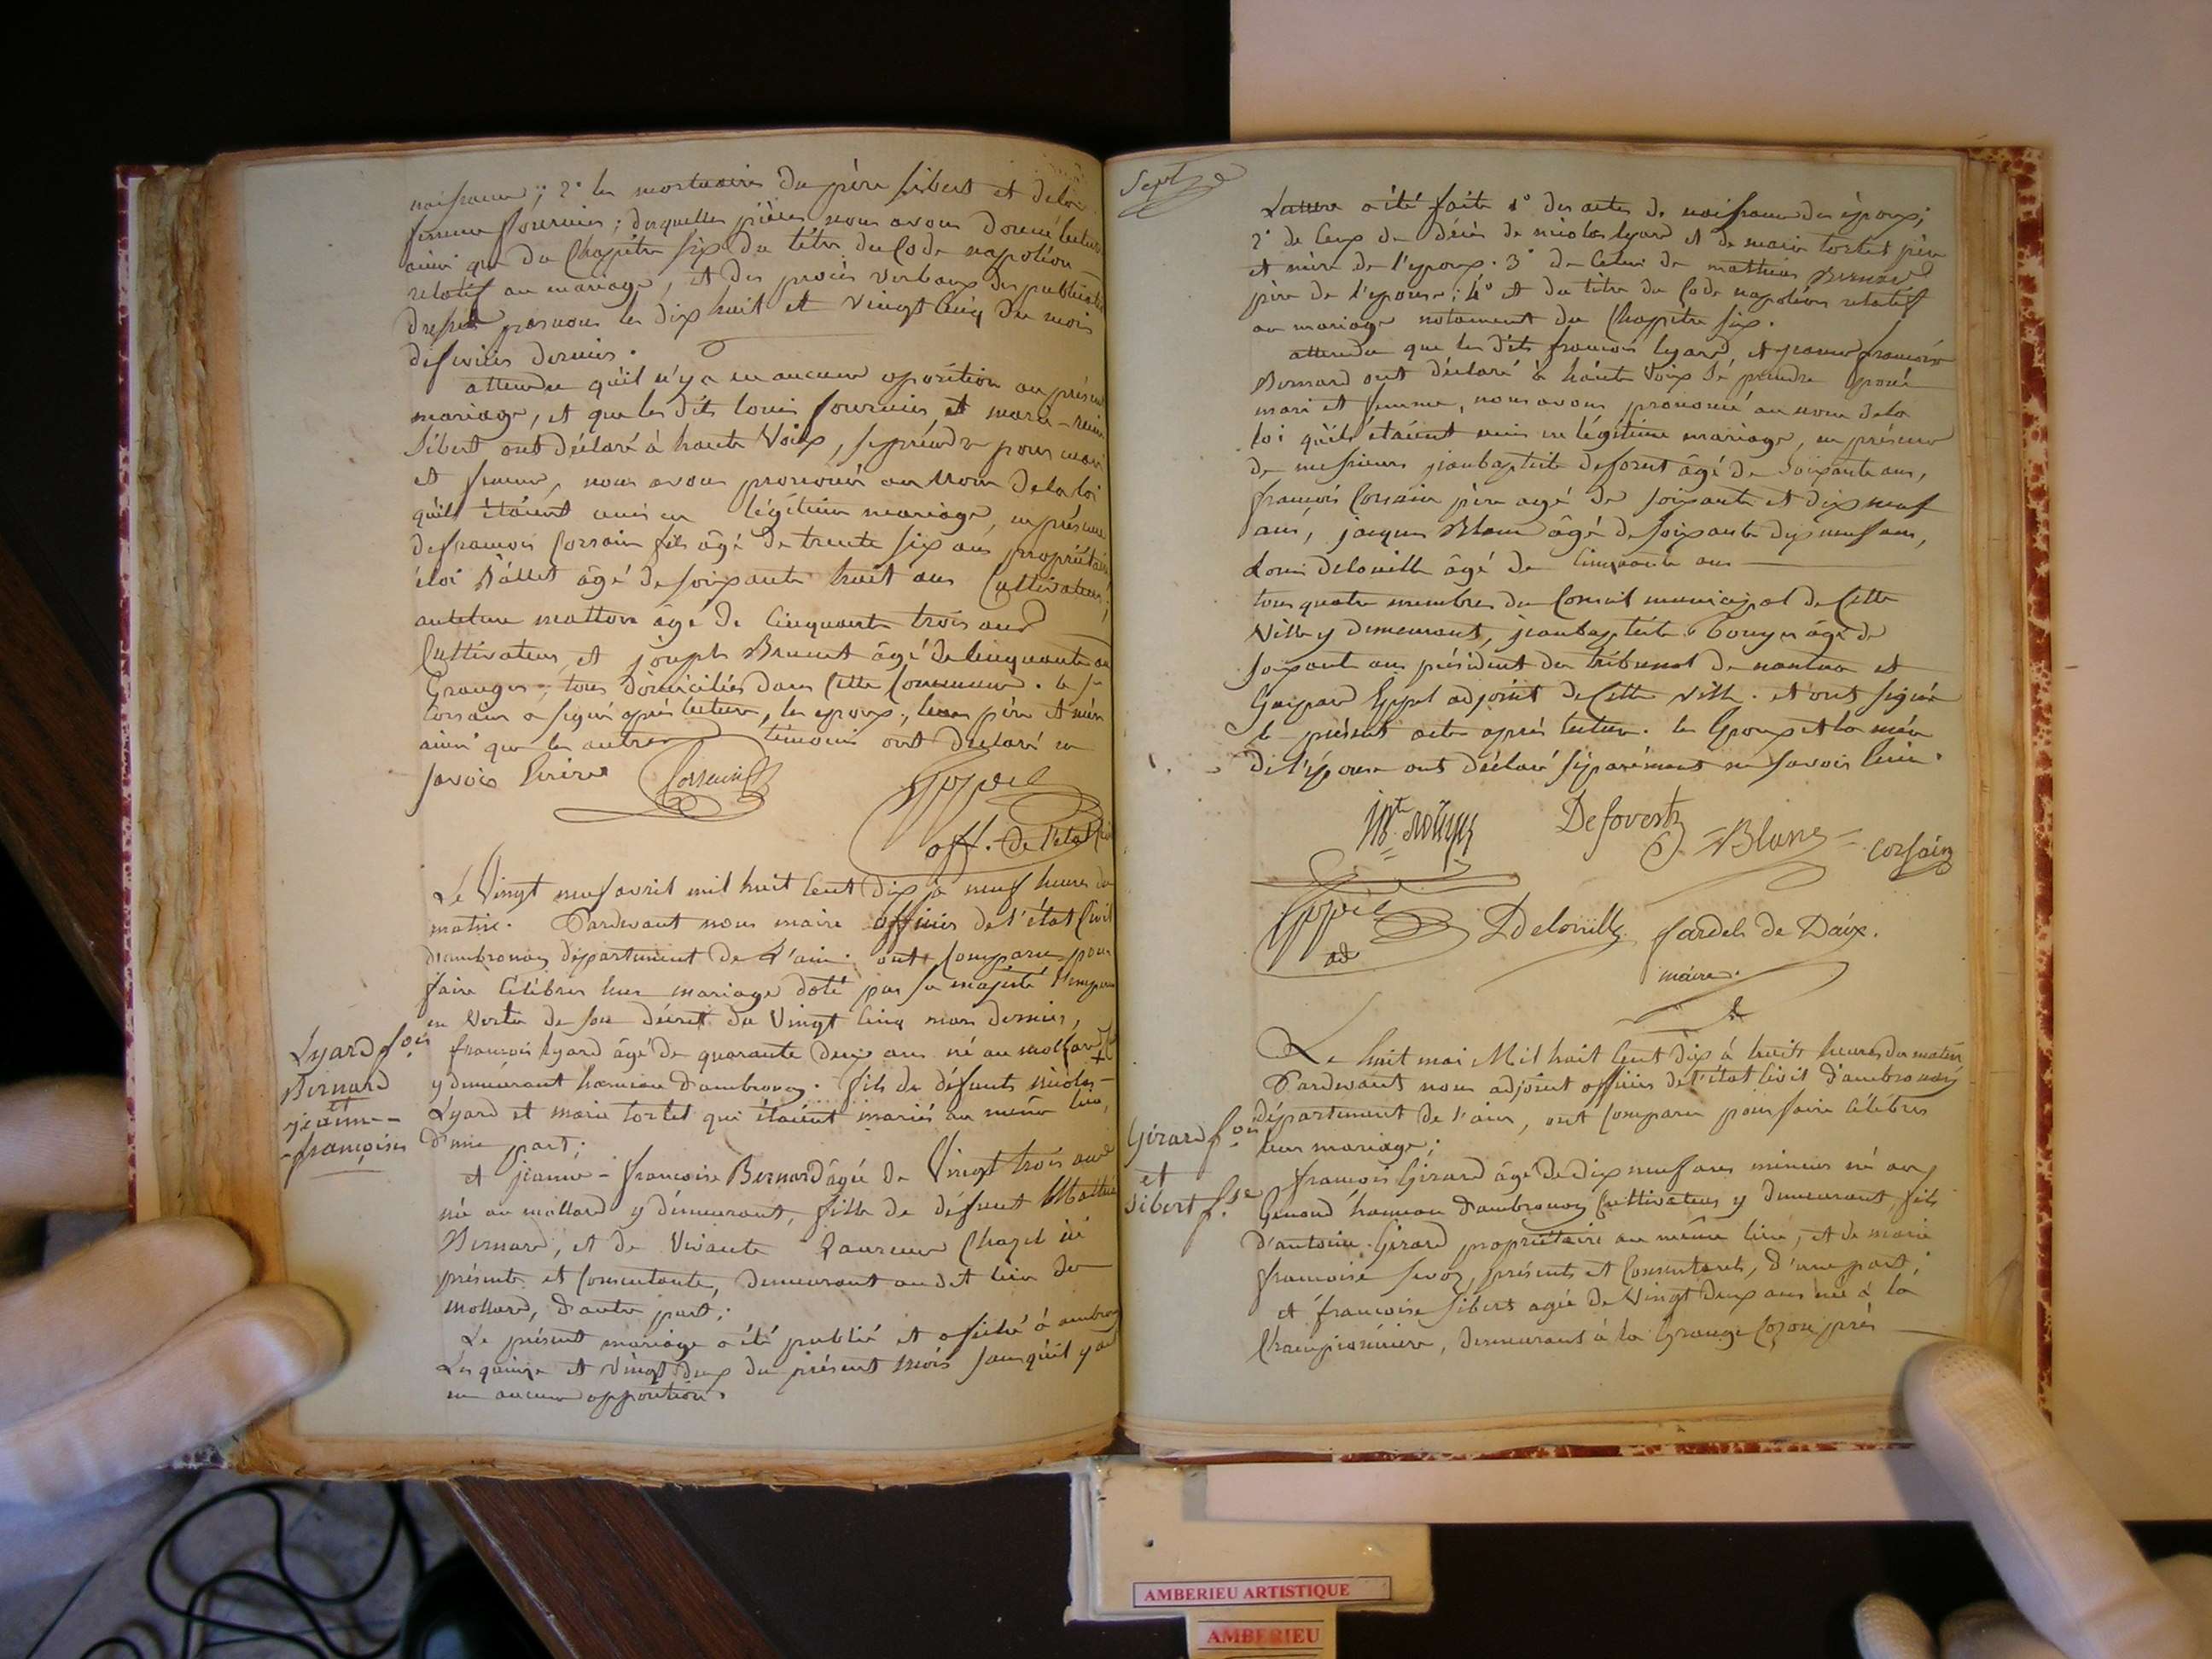 naissance; 2° les mortuaires du père sibert et dela
femme fournier; desquelles pièces nous avons donné lecture
ainsi que du Chapitre six du titre du Code napoléon
relatif au mariage, et des procès verbaux des publications
dressés par nous les dix huit et vingt cinq du mois
de fevrier dernier.
attendu qu'il n'y a eu aucune oposition au présent
mariage, et que les dits louis fournier et marie-reine
Sibert ont déclaré à haute Voix, se prendre pour mari
et femme, nous avons prononcé au Nom de la loi
qu'ils étaient unis en légitime mariage, en présence
de francois Corsain fils âgé de trente six ans propriétaire
éloi âgé de soixante huit ans Cultivateur,
antelme matton âgé de Cinquante trois ans
Cultivateur, et joseph Brunet âgé de Cinquante
Granger; tous domiciliés dans Cette Commune. le sr
Corsain a signé après lecture, les epoux, leurs père et mère
ainsi que les autres témoins ont declaré ne
savoir Ecrire Corsain
Eppel
off. de l'etat
Le Vingt neuf avril mil huit Cent dix à neuf heures du
matin. Pardevant nous maire officier de l'état Civil
d'ambronay département de L'ain. ont Comparu pour
faire Célébrer leur mariage doté par sa majesté l'empereur
en Vertu de son décret du Vingt Cinq mars dernier,
Lyard fois
Bernard
et
jeanne-
françoise
francois lyard âgé de quarante deux ans né au mollard
y demeurant hameau d'ambronay. fils de défunts nicolas-
Lyard et marie tortet qui étaient mariés au même lieu,
d'une part;
et jeanne-francoise Bernard âgée de Vingt trois ans
née au mollard y démeurant, fille de défunt Mathieu
Bernard, et de Vivante Laurence Chazel ici
présente et Consentante, demeurant audit lieu du
mollard, d'autre part;
Le présent mariage a été publié et afiché à ambronay
Les quinze et vingt deux du présent mois sans qu'il y ait
eu aucune opposition.
Sept
Lecture a été faite 1° des actes de naissance des époux;
2° de Ceux de décès de nicolas lyard et de marie tortet père
et mère de l'epoux. 3° de Celui de mathieu Bernard
père de l'epouse; 4° et du titre du Code napoléon relatif
au mariage notament du Chapitre six.
attendu que les dits francois lyard, et jeanne francoise
Bernard ont déclaré à haute Voix sé prendre pour
mari et femme, nous avons prononcé au nom de la
loi qu'ils étaient unis en légitime mariage, en présence
de messieurs jeanbaptiste deforest âgé de soixante ans,
francois Corsain père agé de soixante et dix neuf
ans, jacques Blanc âgé de soixante dix neuf ans,
Louis delouille âgé de Cinquante ans
tous quatre membres du Conseil municipal de Cette
Ville y demeurant, jeanbaptiste Rouyer âgé de
soixante ans président du tribunal de nantua et
Gaspard Eppel adjoint de Cette Ville. et ont signé
le présent acte après lecture. les Epoux et la mère
de l'épouse ont déclaré séparément ne savoir Ecrire.
Deforest
=Blanc=
corsain
Eppel
ad
Delouille
fardel de Daix.
maire.
Le huit mai Mil huit Cent dix à huit heures du matin
Pardevant nous adjoint officier de l'état Civil d'ambronay
département de l'ain, ont Comparu pour faire Célébrer
leur mariage;
Girard fois
et
Sibert f.se
francois Girard âgé de dix neuf ans mineur né au
Genoud hameau d'ambronay Cultivateur y demeurant, fils
d'antoine Girard propriétaire au même lieu, et de marie
francoise sevoz, présents et Consentants, d'une part;
et francoise Sibert agée de Vingt deux ans née à la
Championnière, demeurant à la Grange Cozon près
AMBERIEU ARTISTIQUE
AMBERIEU